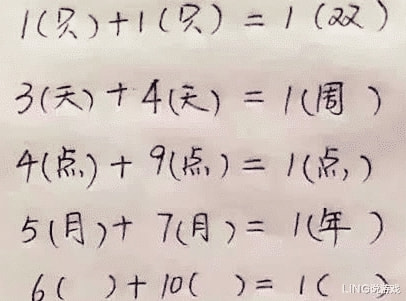 1(只)+1(只)=1(双)
3(天)+4(天)=1(周)
4(点)+9(点)=1(点)
5(月)+7(月)=1(年)
6( )+10( )=1( )
LING说游戏